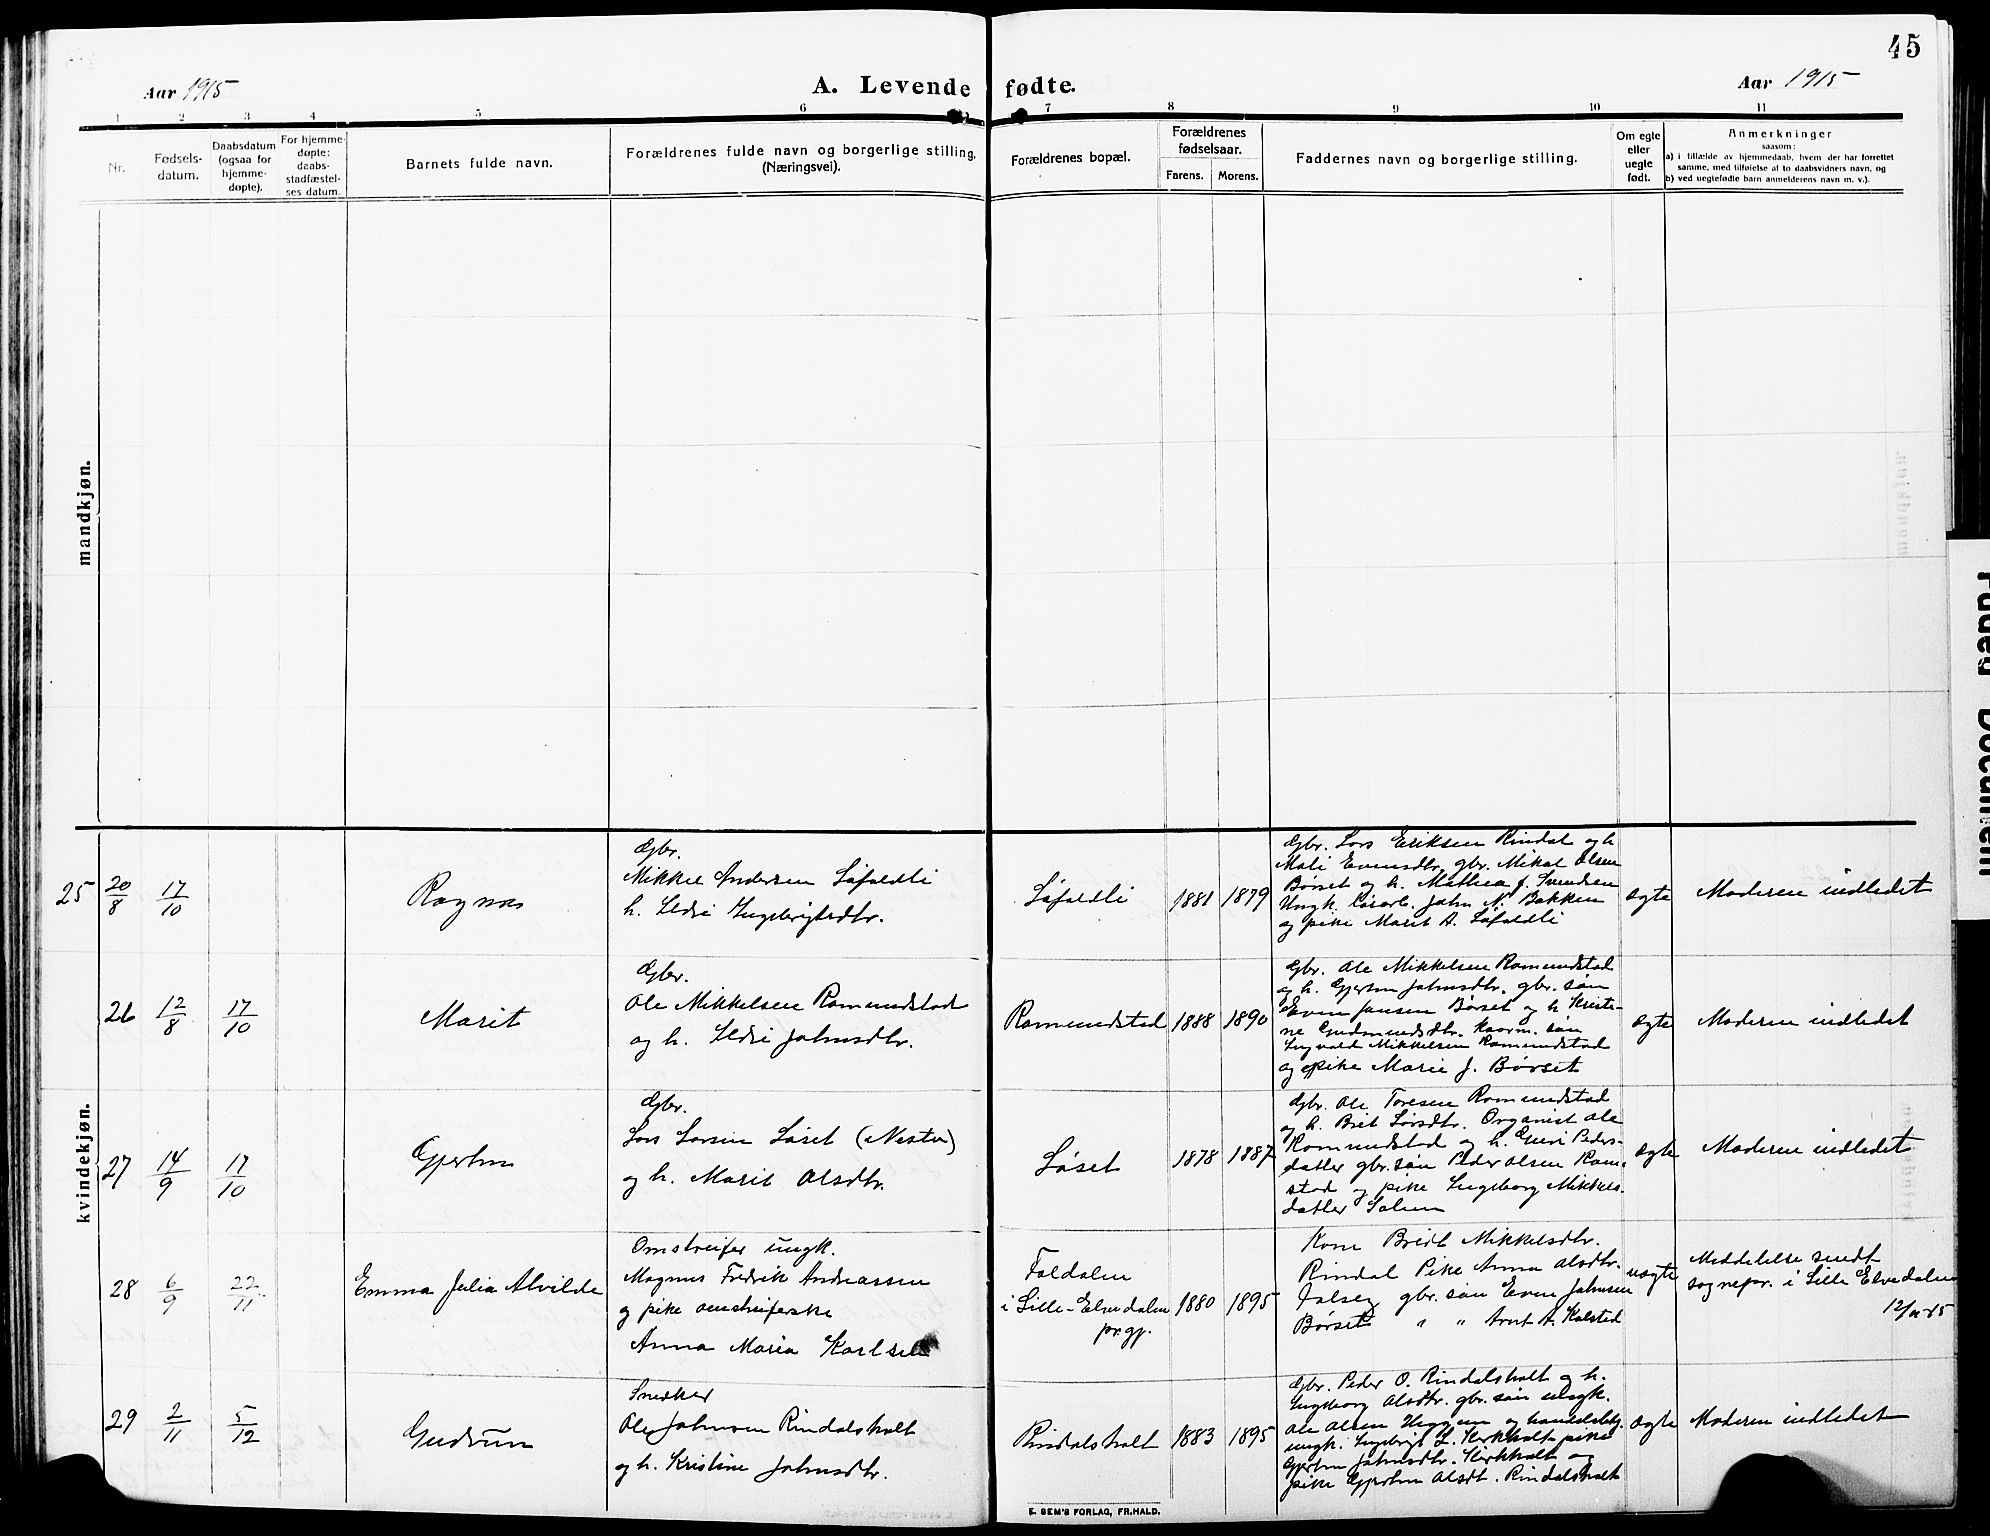 45
Aar 1915
A. Levende fødte.
Aar 1915
1 2 3 4 5 6 7 8 9 10 11
Nr.
Fødsels-
datum.
Daabsdatum
(ogsaa for
hjemme-
døpte).
For hjemme-
døpte:
daabs-
stadfæstel-
ses datum.
Barnets fulde navn.
Forældrenes fulde navn og borgerlige stilling.
(Næringsvei).
Forældrenes bopæl.
Forældrenes
fødselsaar.
Farens. Morens.
Faddernes navn og borgerlige stilling.
Om egte
eller
uegte
født.
Anmerkninger
saasom:
a) i tilfælde av hjemmedaab, hvem der har forrettet
samme, med tilføielse af to daabsvidners navn, og
b) ved uegtefødte barn anmelderens navn m. v.).
mandkjøn.
kvindekjøn.
25
20/8
17/10
Ragna
Gbr.
Mikkel Andersen Løfaldli
h. Sldri Ingebrigtsdtr.
Løfaldli
1881 1879
Gbr. Lars Eriksen Rindal og h
Mali Evensdtr, gbr. Mikal Olsen
Børset og h. Mathea J. Svendsen
Ungk. John N. Bakken
og pike Marit A. Løfaldli
egte
Moderen indledet
26
12/8
17/10
Marit
Gbr.
Ole Mikkelsen Romundstad
og h. Sldri Johnsdtr.
Romundstad
1888 1890
Gbr. Ole Mikkelsen Romundstad
og h. Gjertru Johnsdtr. gbr. søn
Even Jansen Børset og h Kristi-
ne Gudmundsdtr. Kaarm. søn
Ingvald Mikkelsen Romundstad
og pike Marie J. Børset
egte
Moderen indledet
27
14/9
17/10
Gjertru
Gbr.
Lars Larsen Løset (Nestu)
og h. Marit Olsdtr.
Løset
1878 1887
Gbr. Ole Toresen Romundstad
og h. Brit Larsdtr. Organist Ole
Romundstad og h. Guri Peders-
datter gbr. søn Peder Olsen Rom-
stad og pike Ingeborg Mikkels-
datter Solum
egte
Moderen indledet
28
6/9
22/11
Emma Julia Alvilde
Omstreifer ungk.
Magnus Fredrik Andreassen
og pike omstreiferske
Anna Maria Karlsen
Foldalen
i Lille-Elvedalen
prgj.
1880 1895
Kone Bredt Mikkelsdtr.
Rindal Pike Anna Olsdtr.
gbr. søn Even Johnsen
Børset " " Arnt A. Kalstad
uegte
Meddelelse sendt
sognepr. i Lille Elvedalen
29
2/11
5/12
Gudrun
Snedker
Ole Johnsen Rindalsholt
og h. Kristine Johnsdtr.
Rindalsholt
1883 1895
Gbr. Peder O. Rindalsholt og h.
Ingeborg Olsdtr. gbr. søn ungk.
Ole Olsen Heggem og handelsbetj.
ungk. Ingebrigt L. Kirkholt pike
Gjertru Johnsdtr. Kirkholt og
pike Gjertru Olsdt. Rindalsholt
egte
Moderen indledet
E. SEM'S FORLAG, FR.HALD.